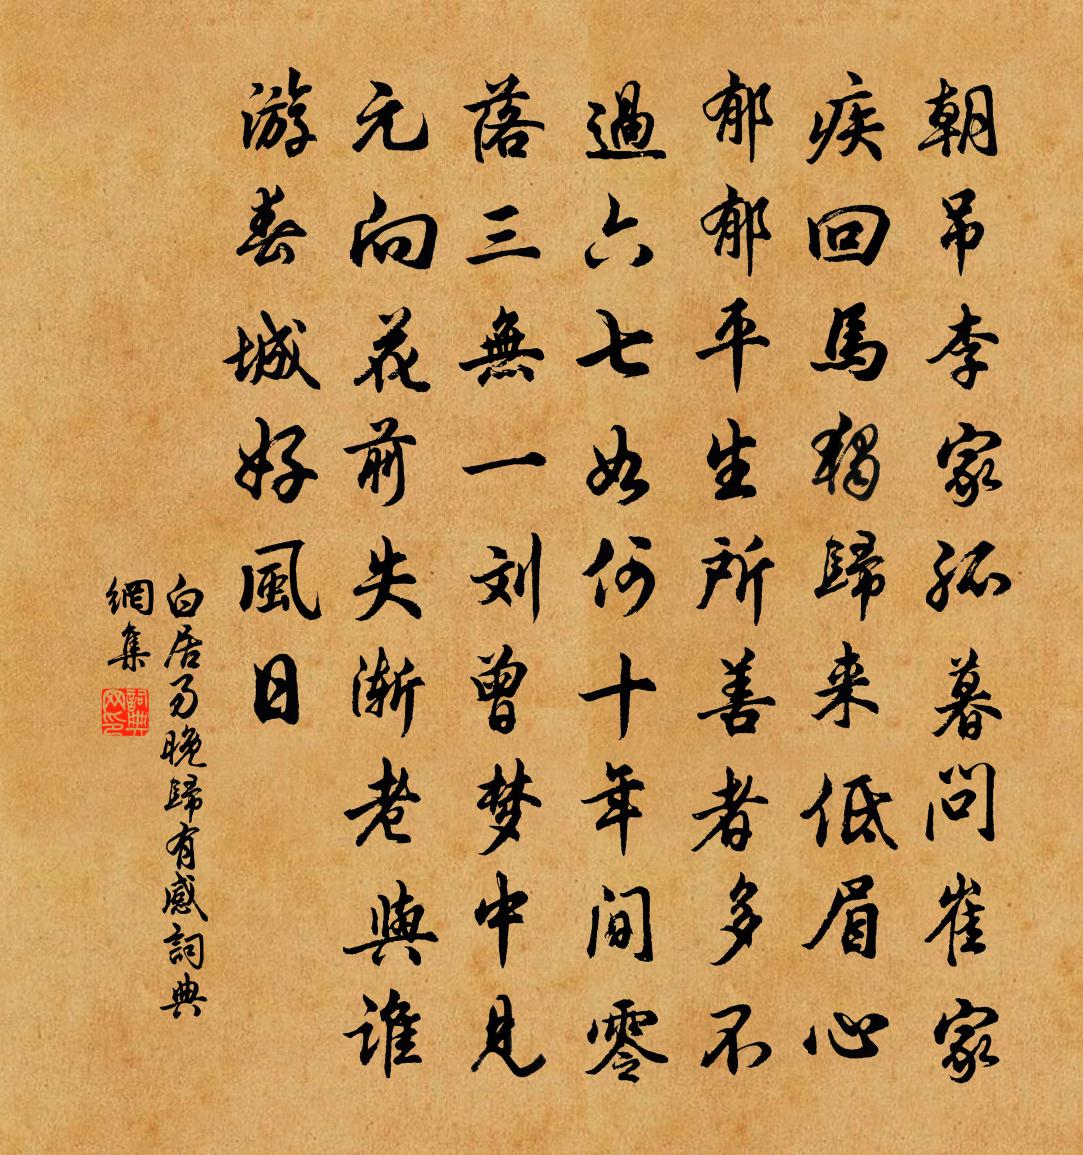 朝吊李家孤暮問崔家
疾回馬獨歸来低眉心
郁郁平生所善者多不
過六七如何十年間零
落三無一刘曾梦中見
元向花前失渐老與誰
游春城好風日
白居易晚歸有感詞典
網集
詞典网印